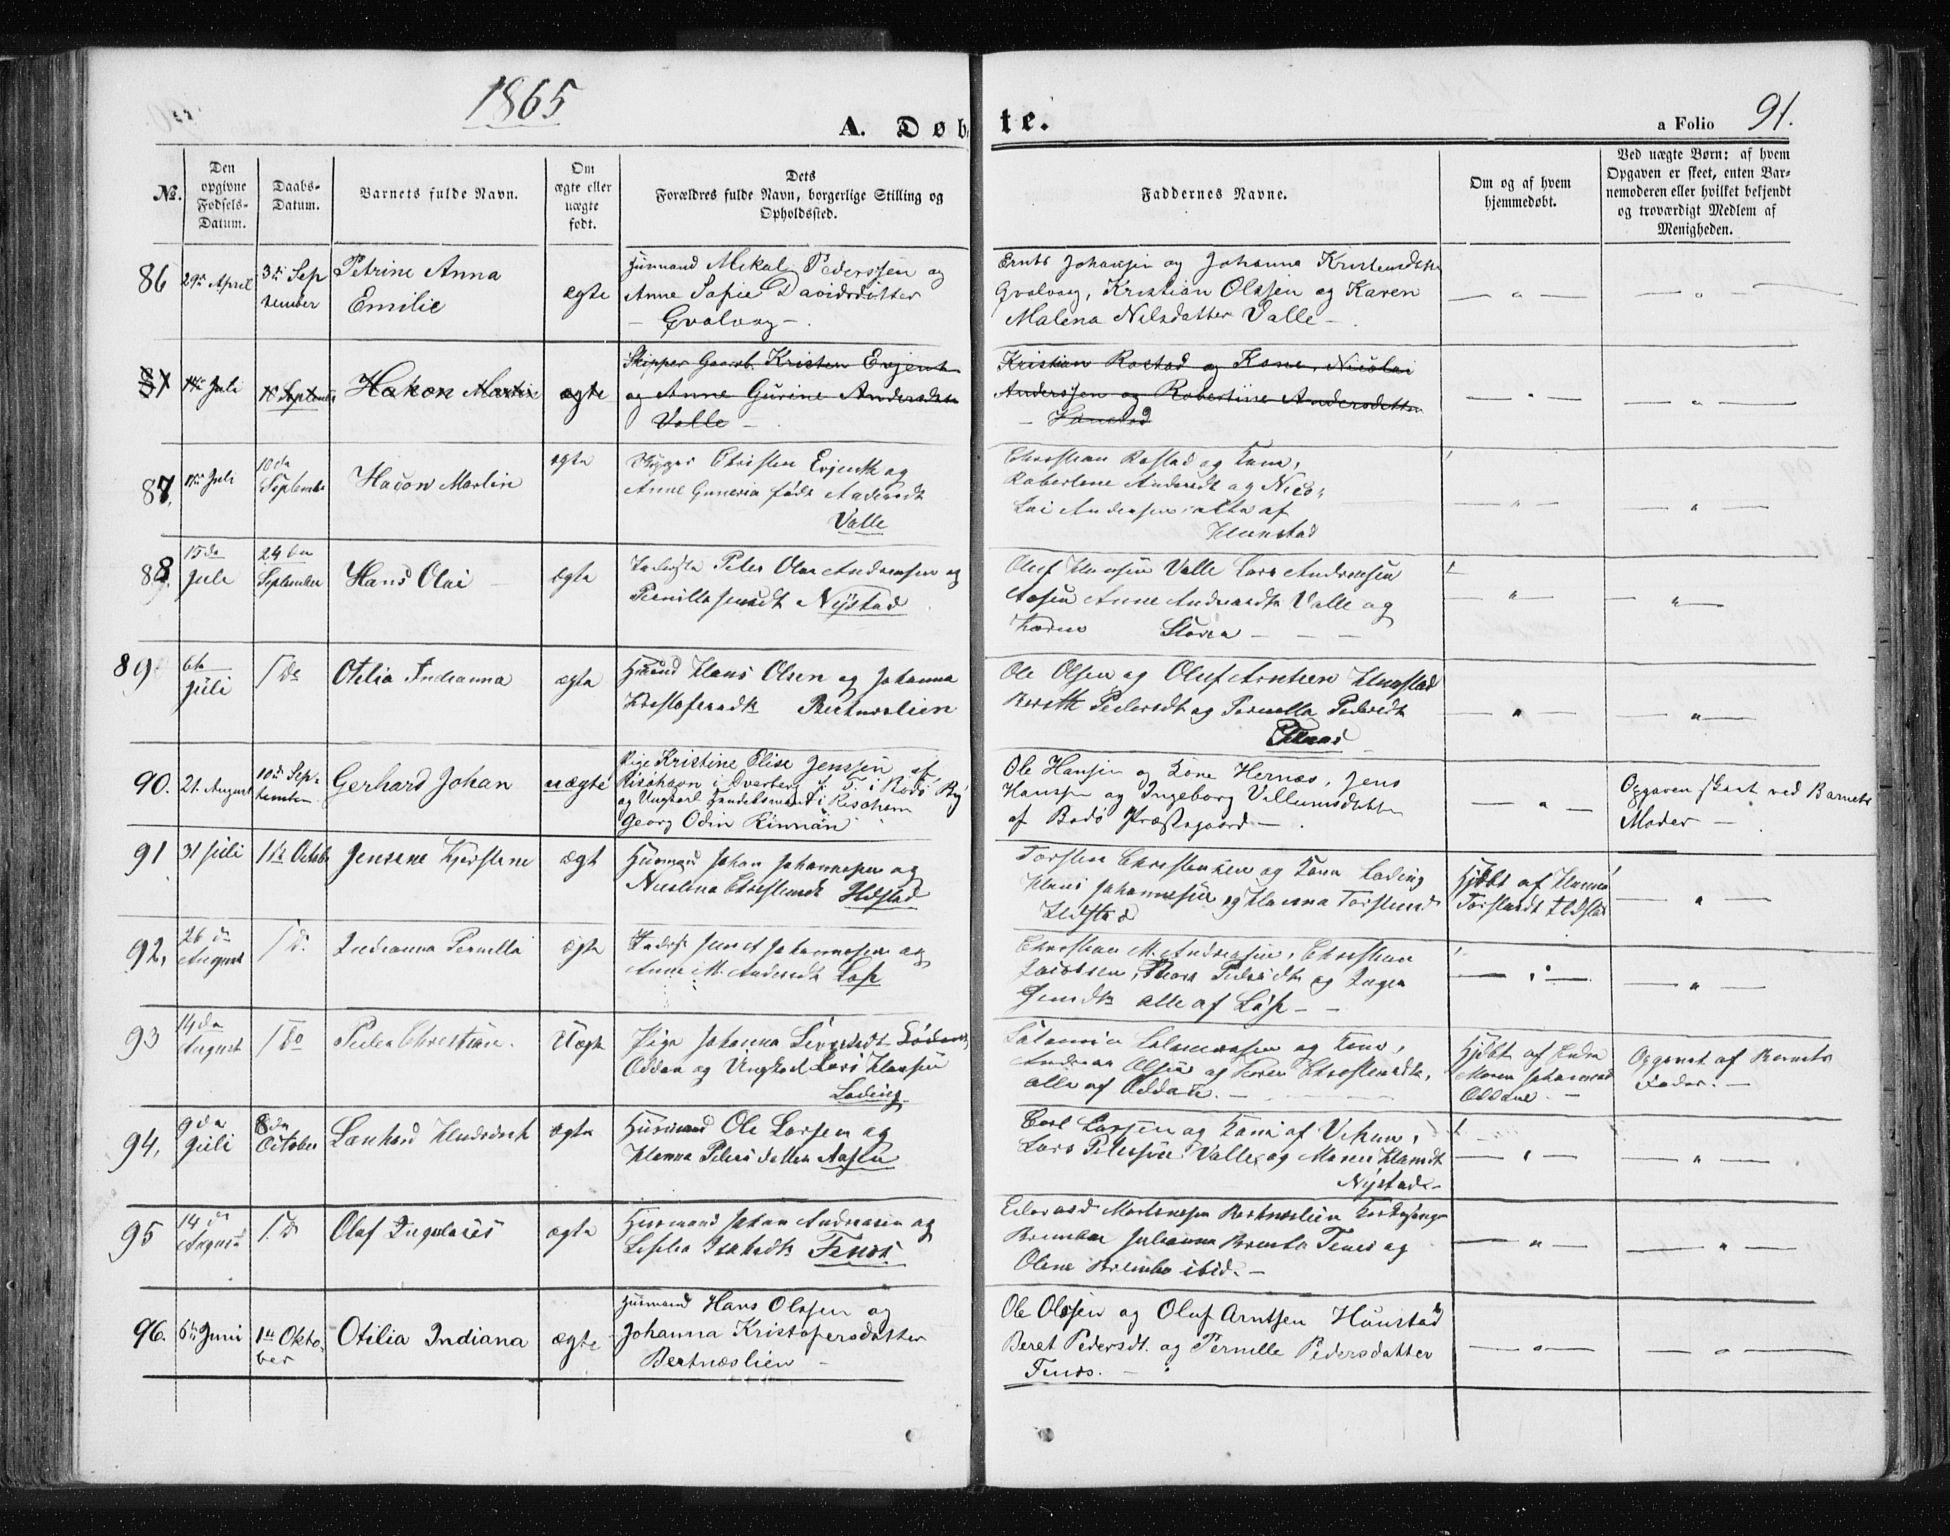 1865
A. Døbte.
a Folio 91.
No.
Den opgivne Fødsels-Datum.
Daabs-Datum.
Barnets fulde Navn.
Om ægte eller uægte født.
Dets Forældres fulde Navn, borgerlige Stilling og Opholdssted.
Faddernes Navne.
Om og af hvem hjemmedøbt.
Ved uægte Børn: af hvem Opgaven er skeet, enten Barnemoderen eller hvilket bekjendt og troværdigt Medlem af Menigheden.
86 29de April 3de September Petrine Anna Emilie ægte
Huusmand Mikal Pederssen og
Anne Sofie Davidsdatter
- Gvalvaag -
Johansen og Johanna Kristensdatter
Gvalvaag, Kristian Olssen og Karen
Malena Nilsdatter Valle -
87 Juli 10 September Hakon Martin ægte
Skipper Gaarb. Kristen Evjenth
og Anne Gurine Andersdatter
Valle -
Kristian Rostad og Kone, Nicolai
Anderssen og Robertine Andersdatter
- Hunstad
87. Juli 10da September Hacon Martin egte
Christen Evjenth og
Anne Guneria født Andersdt
Valle
Christian Rostad og Kone,
Robertene Andersdt og Nico-
lai Andersen alle af
Hunstad
88. 15da Juli 24da September Hans Olai egte
Peter Olai Andreasen og
Pernilla Jensdt Nystad
Oluf Hansen Valle Lars Andreasen
Aasen Anne Andreasdt Valle og
Karen Støver - - -
89. 6te Juli 1 Do Otilia Indianna ægta
Husmand Hans Olsen og Johanna
Kristofersdt Bertnæslien
Ole Olsen og Oluf Arntsen Hunstad
Bereth Pedersdt og Pernella Pedersdt
Tenas
90. 21. August 10de September Gerhard Johan uægte
Pige Kristine Elise Jenssen af
Risøhavn i Dverberg p. T. i Bodø By
og Ungkarl Handelsmand i Risøhavn
Georg Odin Rinnan
Ole Hansen og Kone Hernæs, Jens
Hanssen og Ingeborg Villumsdatter
af Bodø Præstegaard -
Opgaven skeet ved Barnets
Moder -
91 31 Juli 1te October Jensene Kjerstene ægt
Husmand Johan Johannesen og
Nicolina Christensdt Hestad
Torsten Christensen og Kone Løding
Hans Johannesen og Hanna Torstensdt
Hjdøbt af Hanna
Torstensdt
92. 26 da August 1 D. Indianna Pernella ægta
Johannesen og
Anne M. Andersdt Løp
Christian M. Andreasen, Christian
Jacobsen, Pedersdt og Inger
Jensdt alle af Løp - -
93 14da August 1 Do Peder Christian. Uægte
Pige Johanna Sivertsdt
Oddan og Ungkarl Lars Hansen
Løding.
og Kone,
Andreas Olsen og Karen Christensdt,
alle af Oddan. -
Hjdøbt af
Maren Johannesdt
Oddan -
Opgivet af Barnets
Fader. -
94. 9da Juli 8da October Lænhard Hendrick ægta
Husmand Ole Larsen og
Hanna Petersdatter Aasen
Carl Larsen og Kone af Viken,
Lars Petersen Valle og Maren Hansdt
Nystad -
95 14 da August 1. D Olaf Ingolaris ægta
Husmand Johan Andreasen og
Isaksdt Tenas.
Edevard Mortensen Bertneslien
Brembo Julianna Brembo Tenes og
Olene Brembo ibid. -
96. 6te Juni 1te Oktober Otilia Indiana ægte
Husmand Hans Olssen og
Johanna Kristofersdatter
Bertnæslien -
Ole Olssen og Oluf Arntsen Hunstad
Beret Pedersdt. og Pernille Pedersdatter
Tenæs. -